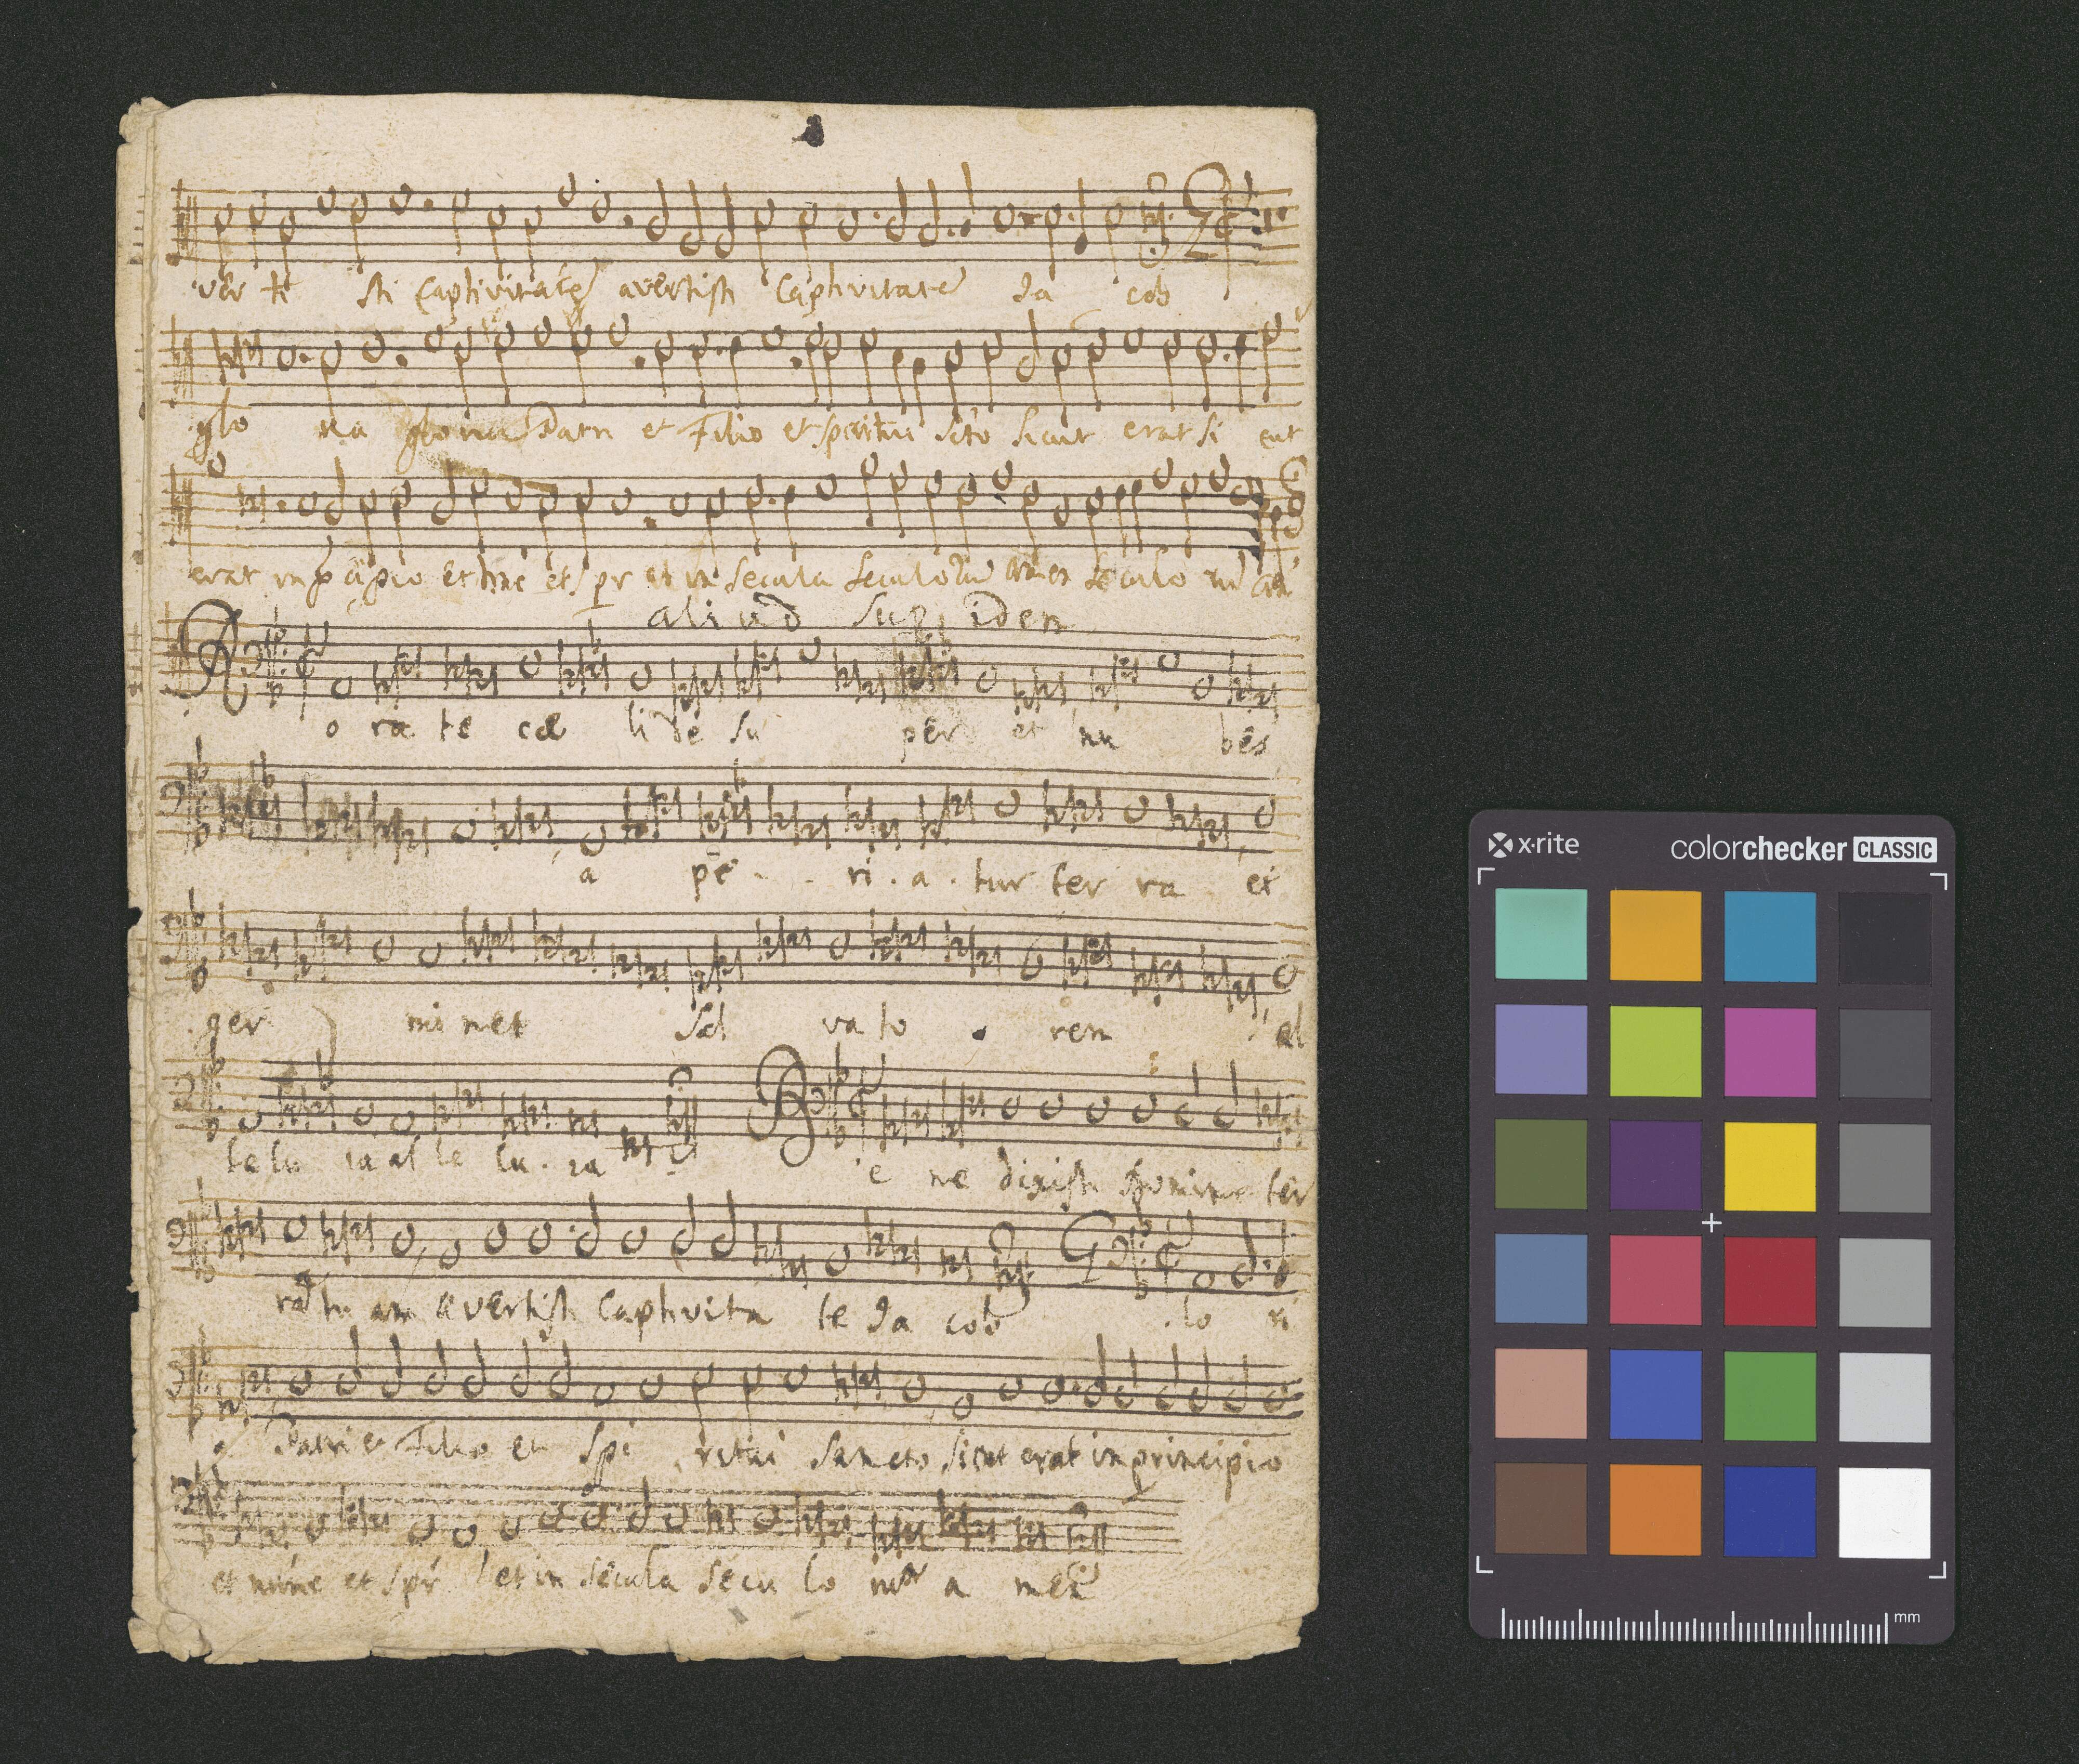 ver ti sti Captivitate avertisti Captivitate Ja cob
glo ria gloria Patri et Filio et spiritui scto sicut erat si cut
erat in pcipio et nnc et spr et in secula seculo amen seculo
aliud sup idem
o ra te cæ li de su per et nu bes
a pe - - ri . a . tur ter ra et
ger mi net Sal va to . rem al
le lu ia al le lu . ia e ne dixisti Domine ter
ram tu am avertisti Captivita te Ja cob . lo ri
a Patri et Filio et Spi ritui Sancto Sicut erat in principio
et nunc et spr et in secula secu lo a men
x·rite colorchecker CLASSIC
mm